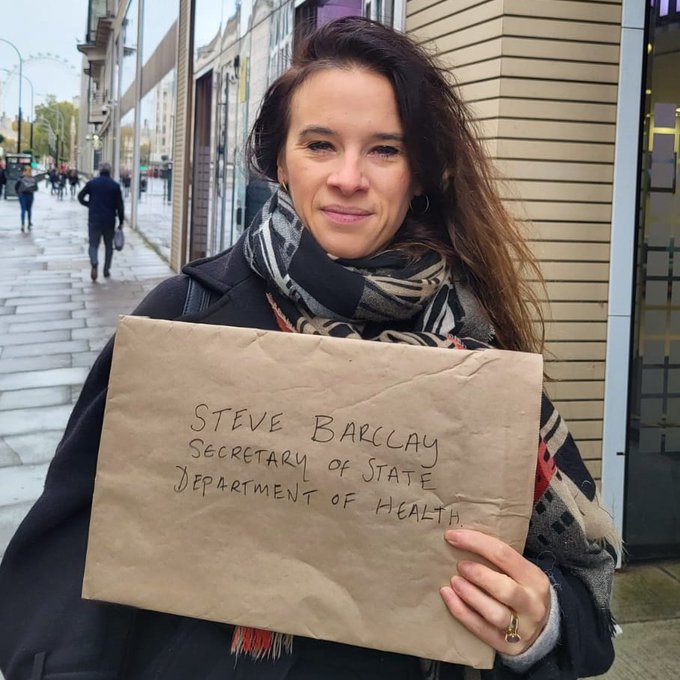 STEVE BARCLAY
SECRETARY OF STATE
DEPARTMENT OF HEALTH.